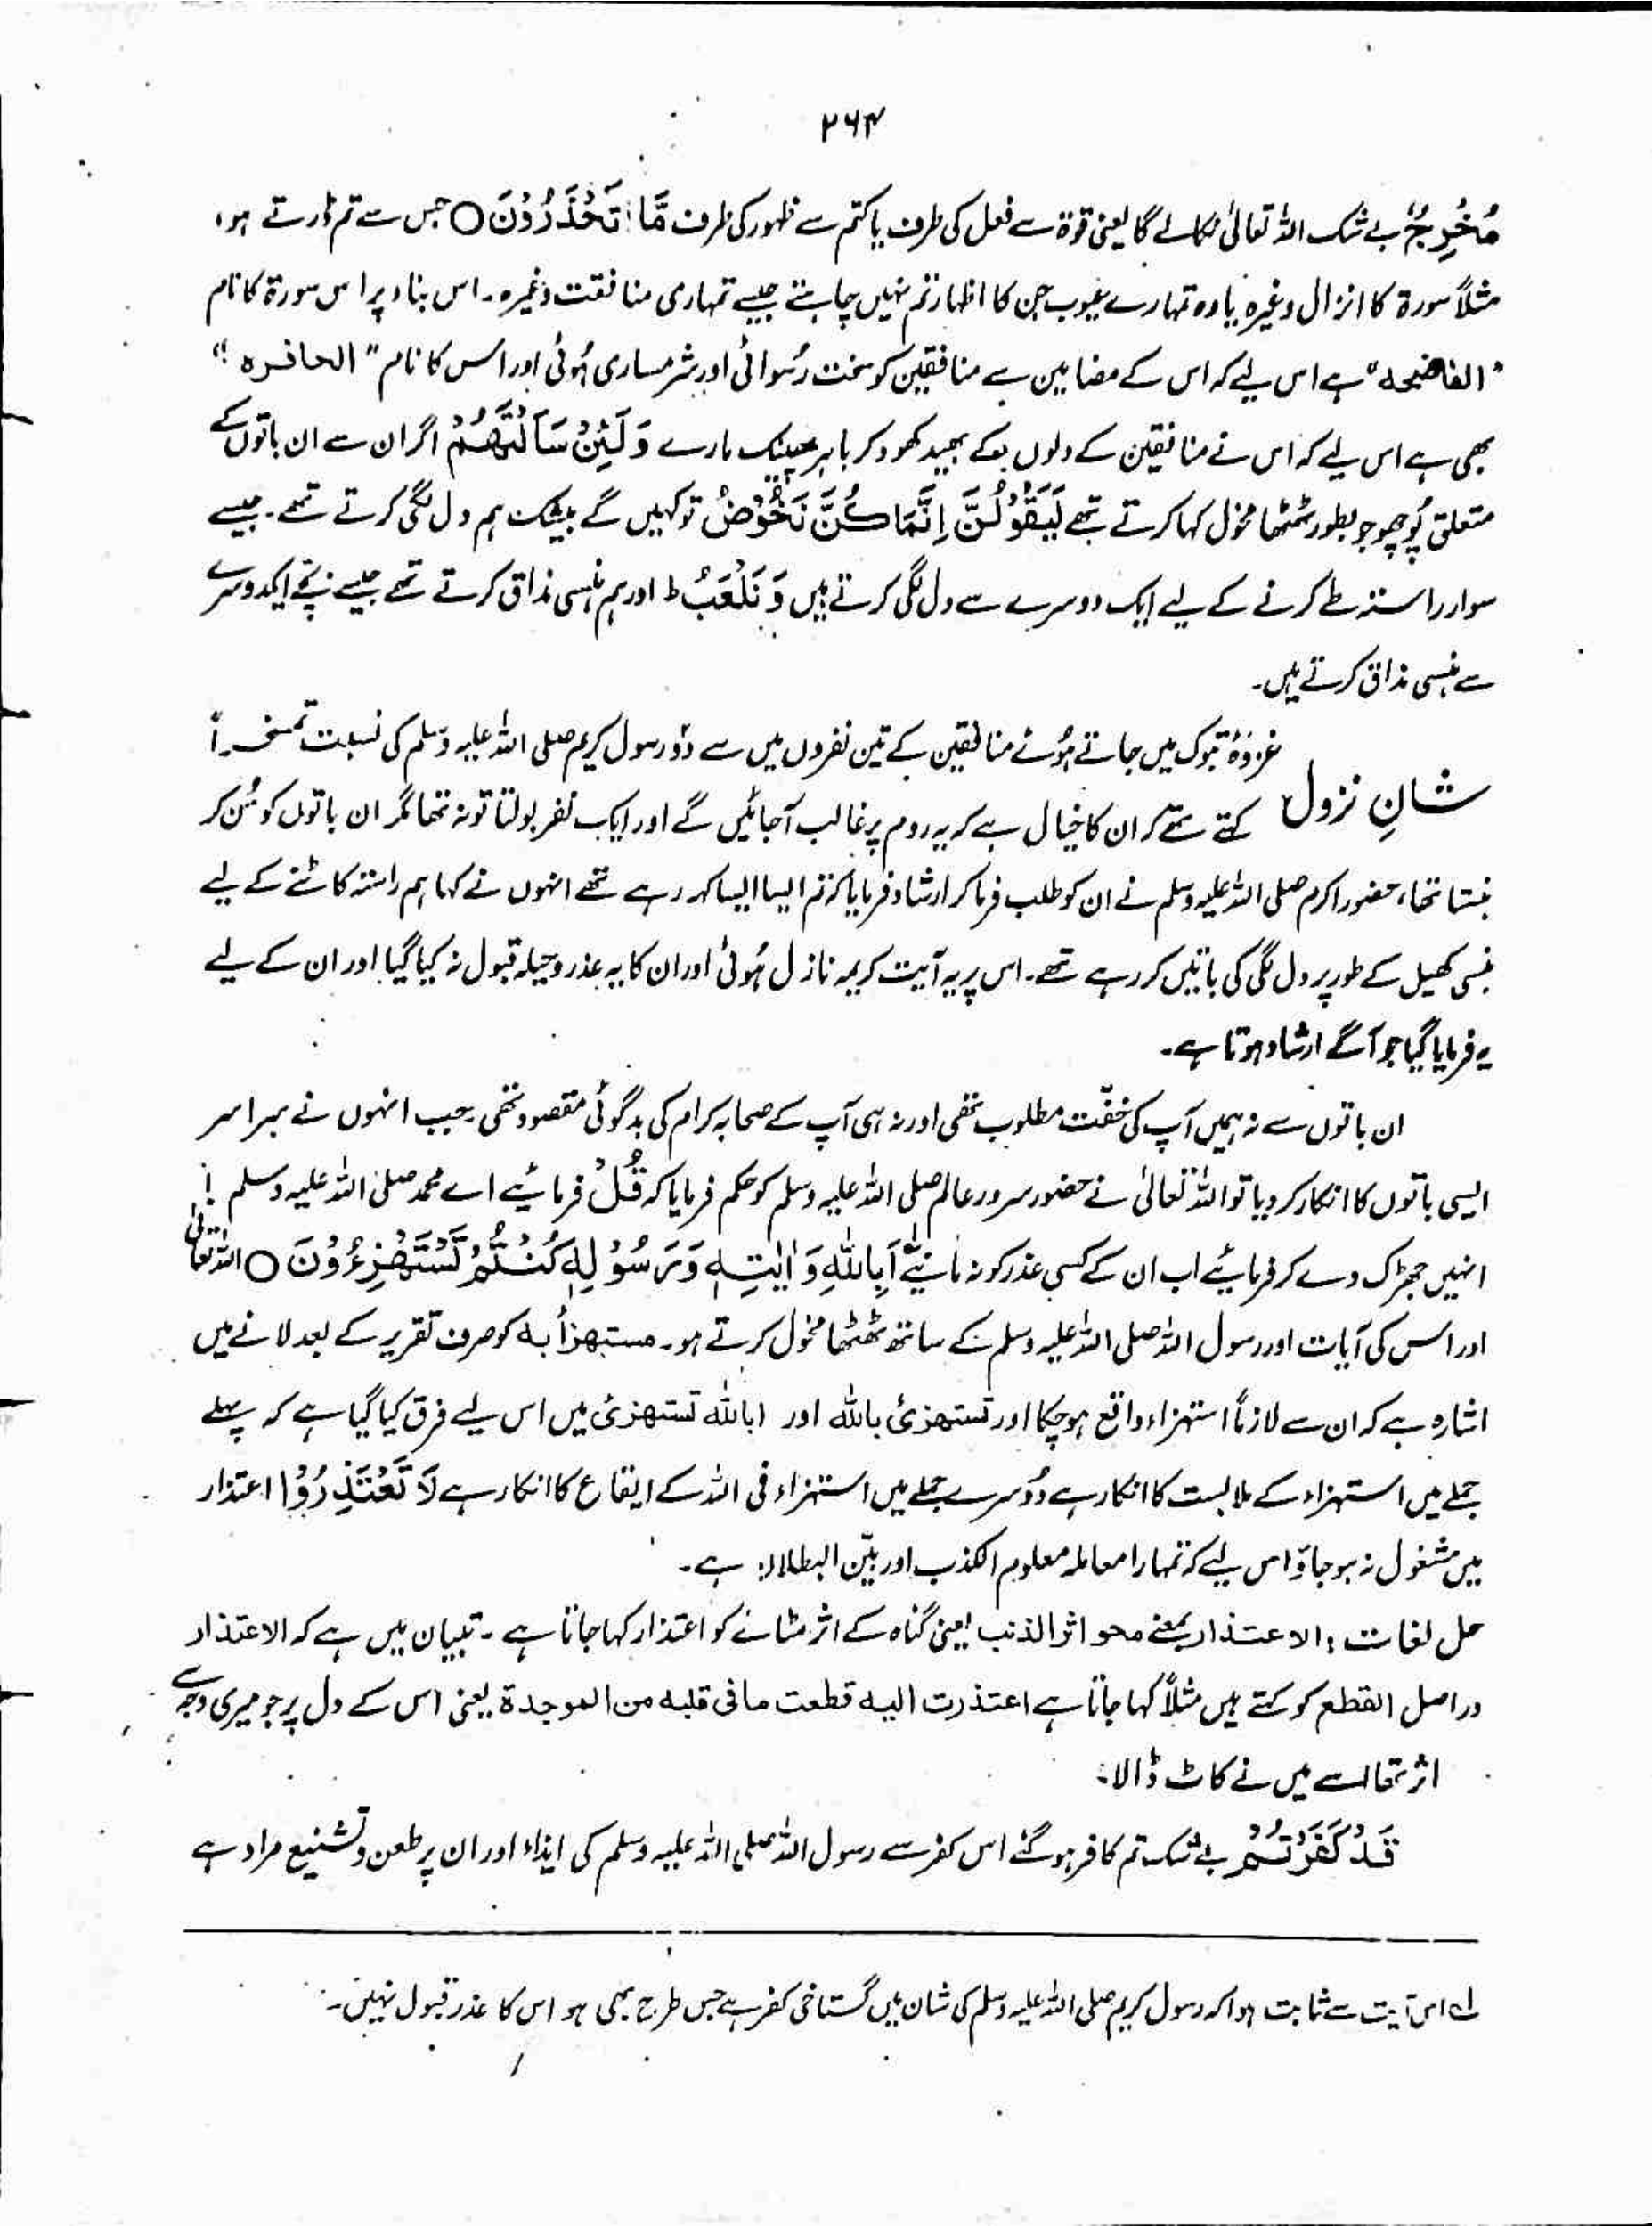 ۲۶۴
مُخْرِجٌ بے شک اللہ تعالیٰ نکالے گا یعنی قوۃ سے فعل کی طرف یا کتم سے ظہور کی طرف مَّا تَحْذَرُوْنَ ○ جس سے تم ڈرتے ہو،
مثلاً سورۃ کا انزال وغیرہ یا وہ تمہارے عیوب جن کا اظہار تم نہیں چاہتے جیسے تمہاری منافقت وغیرہ۔ اس بناء پر اس سورۃ کا نام
"الفاضحہ" ہے اس لیے کہ اس کے مضامین سے منافقین کو سخت رُسوائی اور شرمساری ہُوئی اور اس کا نام "الحافرہ"
بھی ہے اس لیے کہ اس نے منافقین کے دلوں کے بھید کھود کر باہر پھینک مارے وَلَئِنْ سَاَلْتَهُمْ اگر ان سے ان باتوں کے
متعلق پُوچھو جو بطور ٹھٹھا مخول کہا کرتے تھے لَيَقُوْلُنَّ اِنَّمَا كُنَّا نَخُوْضُ تو کہیں گے بیشک ہم دل لگی کرتے تھے۔ جیسے
سوار راستہ طے کرنے کے لیے ایک دوسرے سے دل لگی کرتے ہیں وَ نَلْعَبُ ط اور ہم ہنسی مذاق کرتے تھے جیسے بچے ایک دوسرے
سے ہنسی مذاق کرتے ہیں۔
غزوۂ تبوک میں جاتے ہُوئے منافقین کے تین نفروں میں سے دو رسول کریم صلی اللہ علیہ وسلم کی نسبت تمسخراً
شانِ نزول کہتے تھے کہ ان کا خیال ہے کہ یہ روم پر غالب آجائیں گے اور ایک نفر بولتا تو نہ تھا مگر ان باتوں کو سُن کر
ہنستا تھا، حضور اکرم صلی اللہ علیہ وسلم نے ان کو طلب فرما کر ارشاد فرمایا کہ تم ایسا ایسا کہہ رہے تھے انہوں نے کہا ہم راستہ کاٹنے کے لیے
ہنسی کھیل کے طور پر دل لگی کی باتیں کر رہے تھے۔ اس پر یہ آیت کریمہ نازل ہُوئی اور ان کا یہ عذر و حیلہ قبول نہ کیا گیا اور ان کے لیے
یہ فرمایا گیا جو آگے ارشاد ہوتا ہے۔
ان باتوں سے نہ ہمیں آپ کی خفّت مطلوب تھی اور نہ ہی آپ کے صحابہ کرام کی بدگوئی مقصود تھی۔ جب انہوں نے سراسر
ایسی باتوں کا انکار کر دیا تو اللہ تعالیٰ نے حضور سرور عالم صلی اللہ علیہ وسلم کو حکم فرمایا کہ قُلْ فرمائیے اے محمد صلی اللہ علیہ وسلم!
انہیں جھڑک دے کر فرمائیے اب ان کے کسی عذر کو نہ مانیے اَبِاللّٰهِ وَ اٰيٰتِهٖ وَرَسُوْلِهٖ كُنْتُمْ تَسْتَهْزِءُوْنَ ○ اللہ تعالیٰ
اور اس کی آیات اور رسول اللہ صلی اللہ علیہ وسلم کے ساتھ ٹھٹھا مخول کرتے ہو۔ مستهزأ بہ کو صرف تقریر کے بعد لانے میں
اشارہ ہے کہ ان سے لازماً استہزاء واقع ہو چکا اور تستهزئ باللہ اور اباللہ تستهزئ میں اس لیے فرق کیا گیا ہے کہ پہلے
جملے میں استہزاء کے ملابست کا انکار ہے دُوسرے جملے میں استہزاء فی اللہ کے ایقاع کا انکار ہے لَا تَعْتَذِرُوْا اعتذار
میں مشغول نہ ہو جاؤ اس لیے کہ تمہارا معاملہ معلوم الکذب اور بیّن البطلان ہے۔
حل لغات : الاعتذار بمعنے محو اثر الذنب یعنی گناہ کے اثر مٹانے کو اعتذار کہا جاتا ہے۔ تبیان میں ہے کہ الاعتذار
دراصل القطع کو کہتے ہیں مثلاً کہا جاتا ہے اعتذرت الیہ قطعت مافی قلبہ من الموجدة یعنی اس کے دل پر جو میری وجہ سے
اثر تھا اسے میں نے کاٹ ڈالا۔
قَدْ كَفَرْتُمْ بے شک تم کافر ہو گئے اس کفر سے رسول اللہ صلی اللہ علیہ وسلم کی ایذاء اور ان پر طعن و تشنیع مراد ہے
لے اس آیت سے ثابت ہوا کہ رسول کریم صلی اللہ علیہ وسلم کی شان میں گستاخی کفر ہے جس طرح بھی ہو اس کا عذر قبول نہیں۔